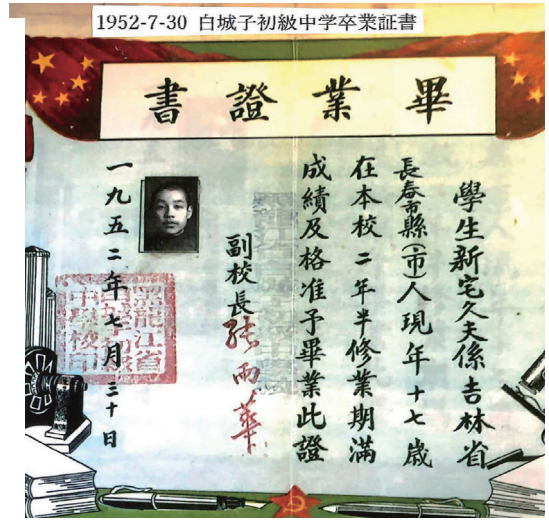 1952-7-30 白城子初級中学卒業証書
畢業證書
學生新宅久夫係吉林省
長春市縣(市)人現年十七歲
在本校二年半修業期滿
成績及格准予畢業此證
副校長張雨華
一九五二年七月三十日
黑龍江省
白城子初級
中學校印